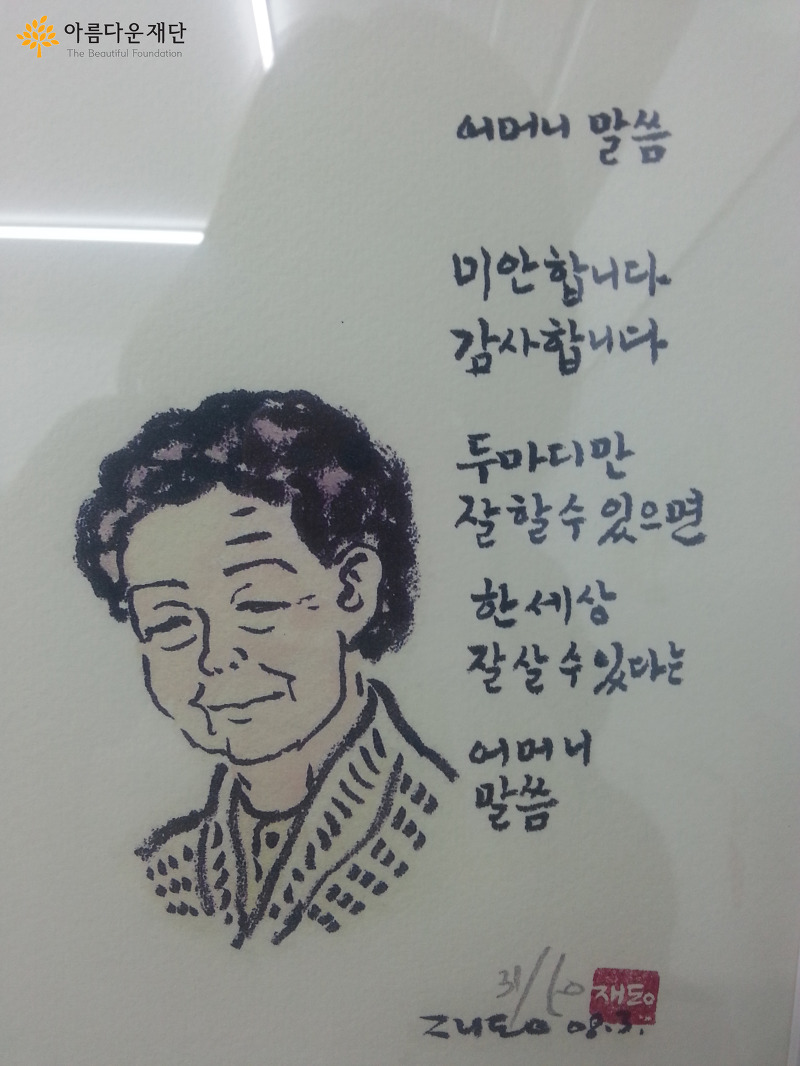 아름다운재단
The Beautiful Foundation
어머니 말씀
미안합니다
감사합니다
두마디만
잘 할 수 있으면
한 세상
잘 살 수 있다는
어머니
말씀
31/50
재동
재동 08.3.